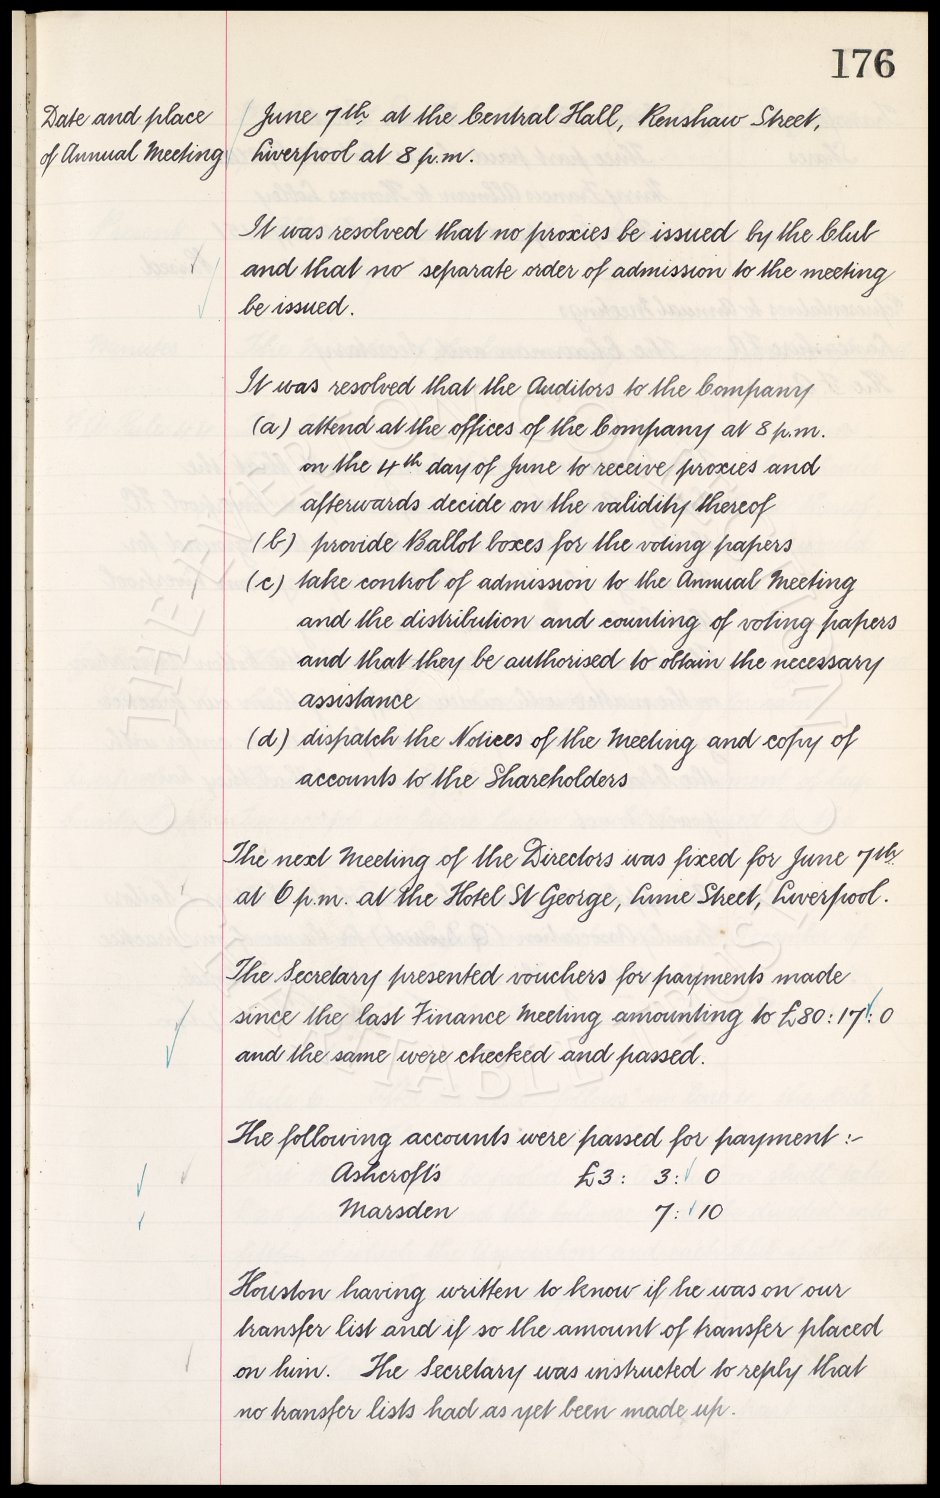 176
Date and place
of Annual Meeting
June 7th at the Central Hall, Renshaw Street,
Liverpool at 8 p.m.
It was resolved that no proxies be issued by the Club
and that no separate order of admission to the meeting
be issued.
It was resolved that the Auditors to the Company
(a) attend at the offices of the Company at 8 p.m.
on the 4th day of June to receive proxies and
afterwards decide on the validity thereof
(b) provide Ballot boxes for the voting papers
(c) take control of admission to the Annual Meeting
and the distribution and counting of voting papers
and that they be authorised to obtain the necessary
assistance
(d) dispatch the Notices of the Meeting and copy of
accounts to the Shareholders
The next Meeting of the Directors was fixed for June 7th
at 6 p.m. at the Hotel St George, Lime Street, Liverpool.
The Secretary presented vouchers for payments made
since the last Finance Meeting amounting to £80 : 17 : 0
and the same were checked and passed.
The following accounts were passed for payment :-
Ashcroft's £3 : 3 : 0
Marsden 7 : 10
Houston having written to know if he was on our
transfer list and if so the amount of transfer placed
on him. The Secretary was instructed to reply that
no transfer lists had as yet been made up.